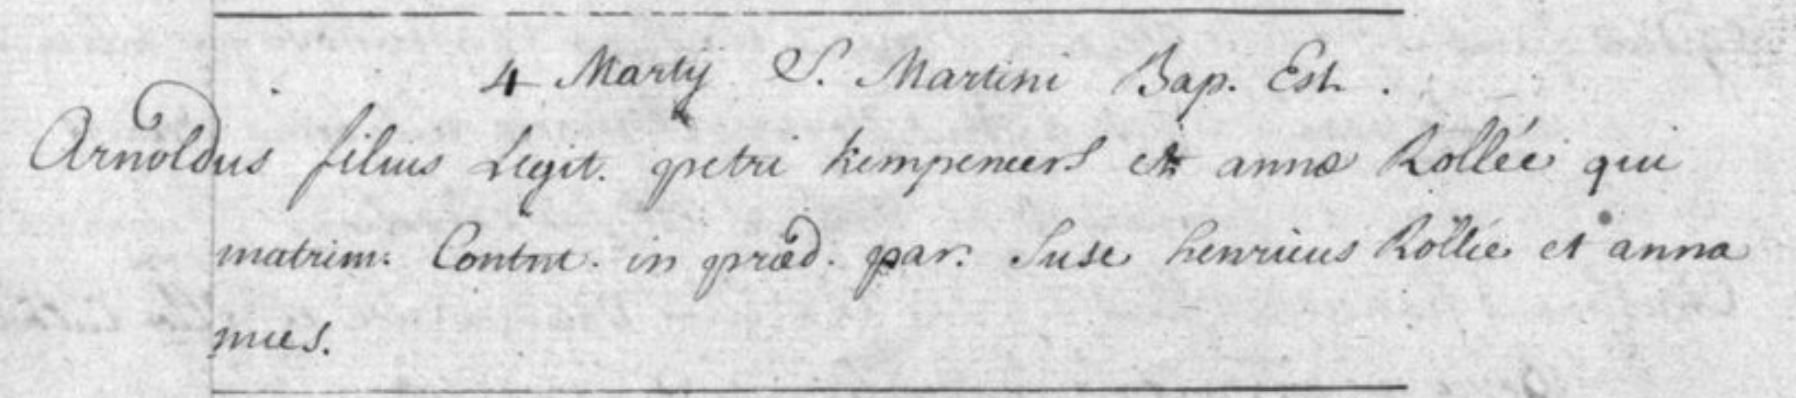 4 Martij S. Martini Bap. Est.
Arnoldus filius Legit. petri kempeneers et annæ Rollée qui
matrim. Contrat. in præd. par. Susc henricus Rollée et anna
mues.